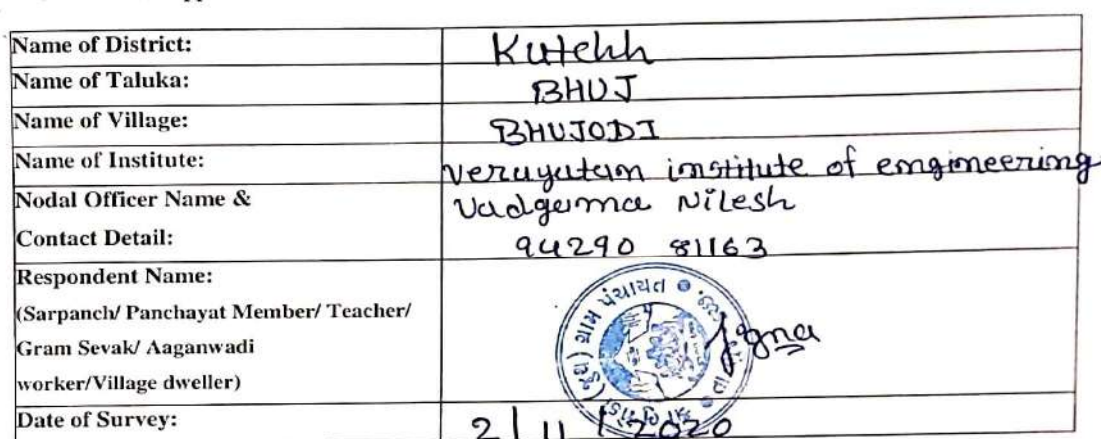 Name of District: Kutchh
Name of Taluka: BHUJ
Name of Village: BHUJODI
Name of Institute: verayatan institute of engineering
Nodal Officer Name & Vadgama Nilesh
Contact Detail: 94290 81163
Respondent Name:
(Sarpanch/ Panchayat Member/ Teacher/
Gram Sevak/ Aaganwadi
worker/Village dweller)
ગ્રામ પંચાયત
Date of Survey: 2/11/2020